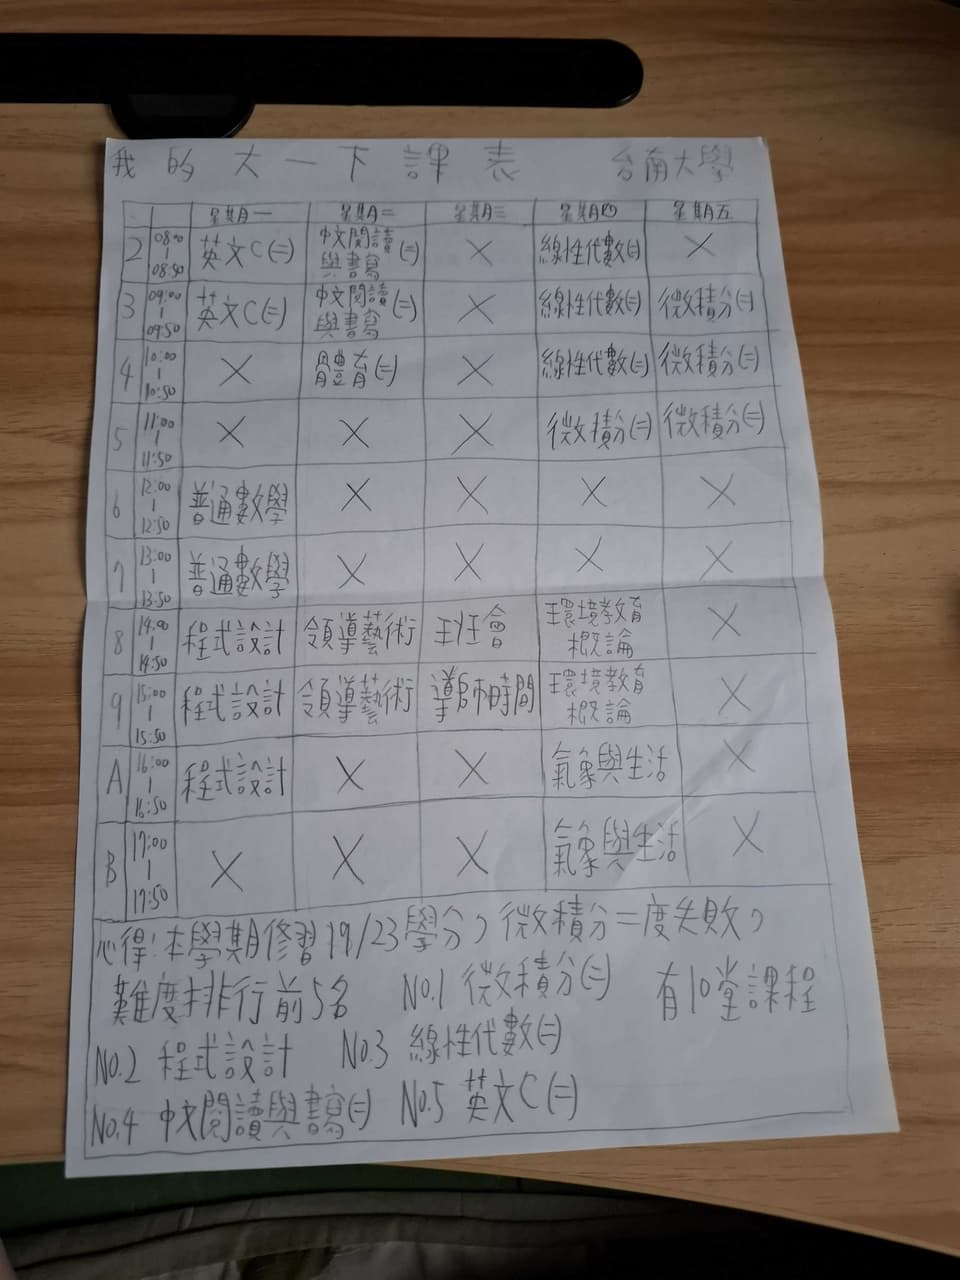 我的大一下課表 台南大學
星期一 星期二 星期三 星期四 星期五
2 08:00-08:50 英文C(二) 中文閱讀與書寫(二) X 線性代數(二) X
3 09:00-09:50 英文C(二) 中文閱讀與書寫(二) X 線性代數(二) 微積分(二)
4 10:00-10:50 X 體育(二) X 線性代數(二) 微積分(二)
5 11:00-11:50 X X X 微積分(二) 微積分(二)
6 12:00-12:50 普通數學 X X X X
7 13:00-13:50 普通數學 X X X X
8 14:00-14:50 程式設計 領導藝術 班會 環境教育概論 X
9 15:00-15:50 程式設計 領導藝術 導師時間 環境教育概論 X
A 16:00-16:50 程式設計 X X 氣象與生活 X
B 17:00-17:50 X X X 氣象與生活 X
心得:本學期修習19/23學分,微積分二度失敗,
難度排行前5名 No.1 微積分(二) 有10堂課程
No.2 程式設計 No.3 線性代數(二)
No.4 中文閱讀與書寫(二) No.5 英文C(二)